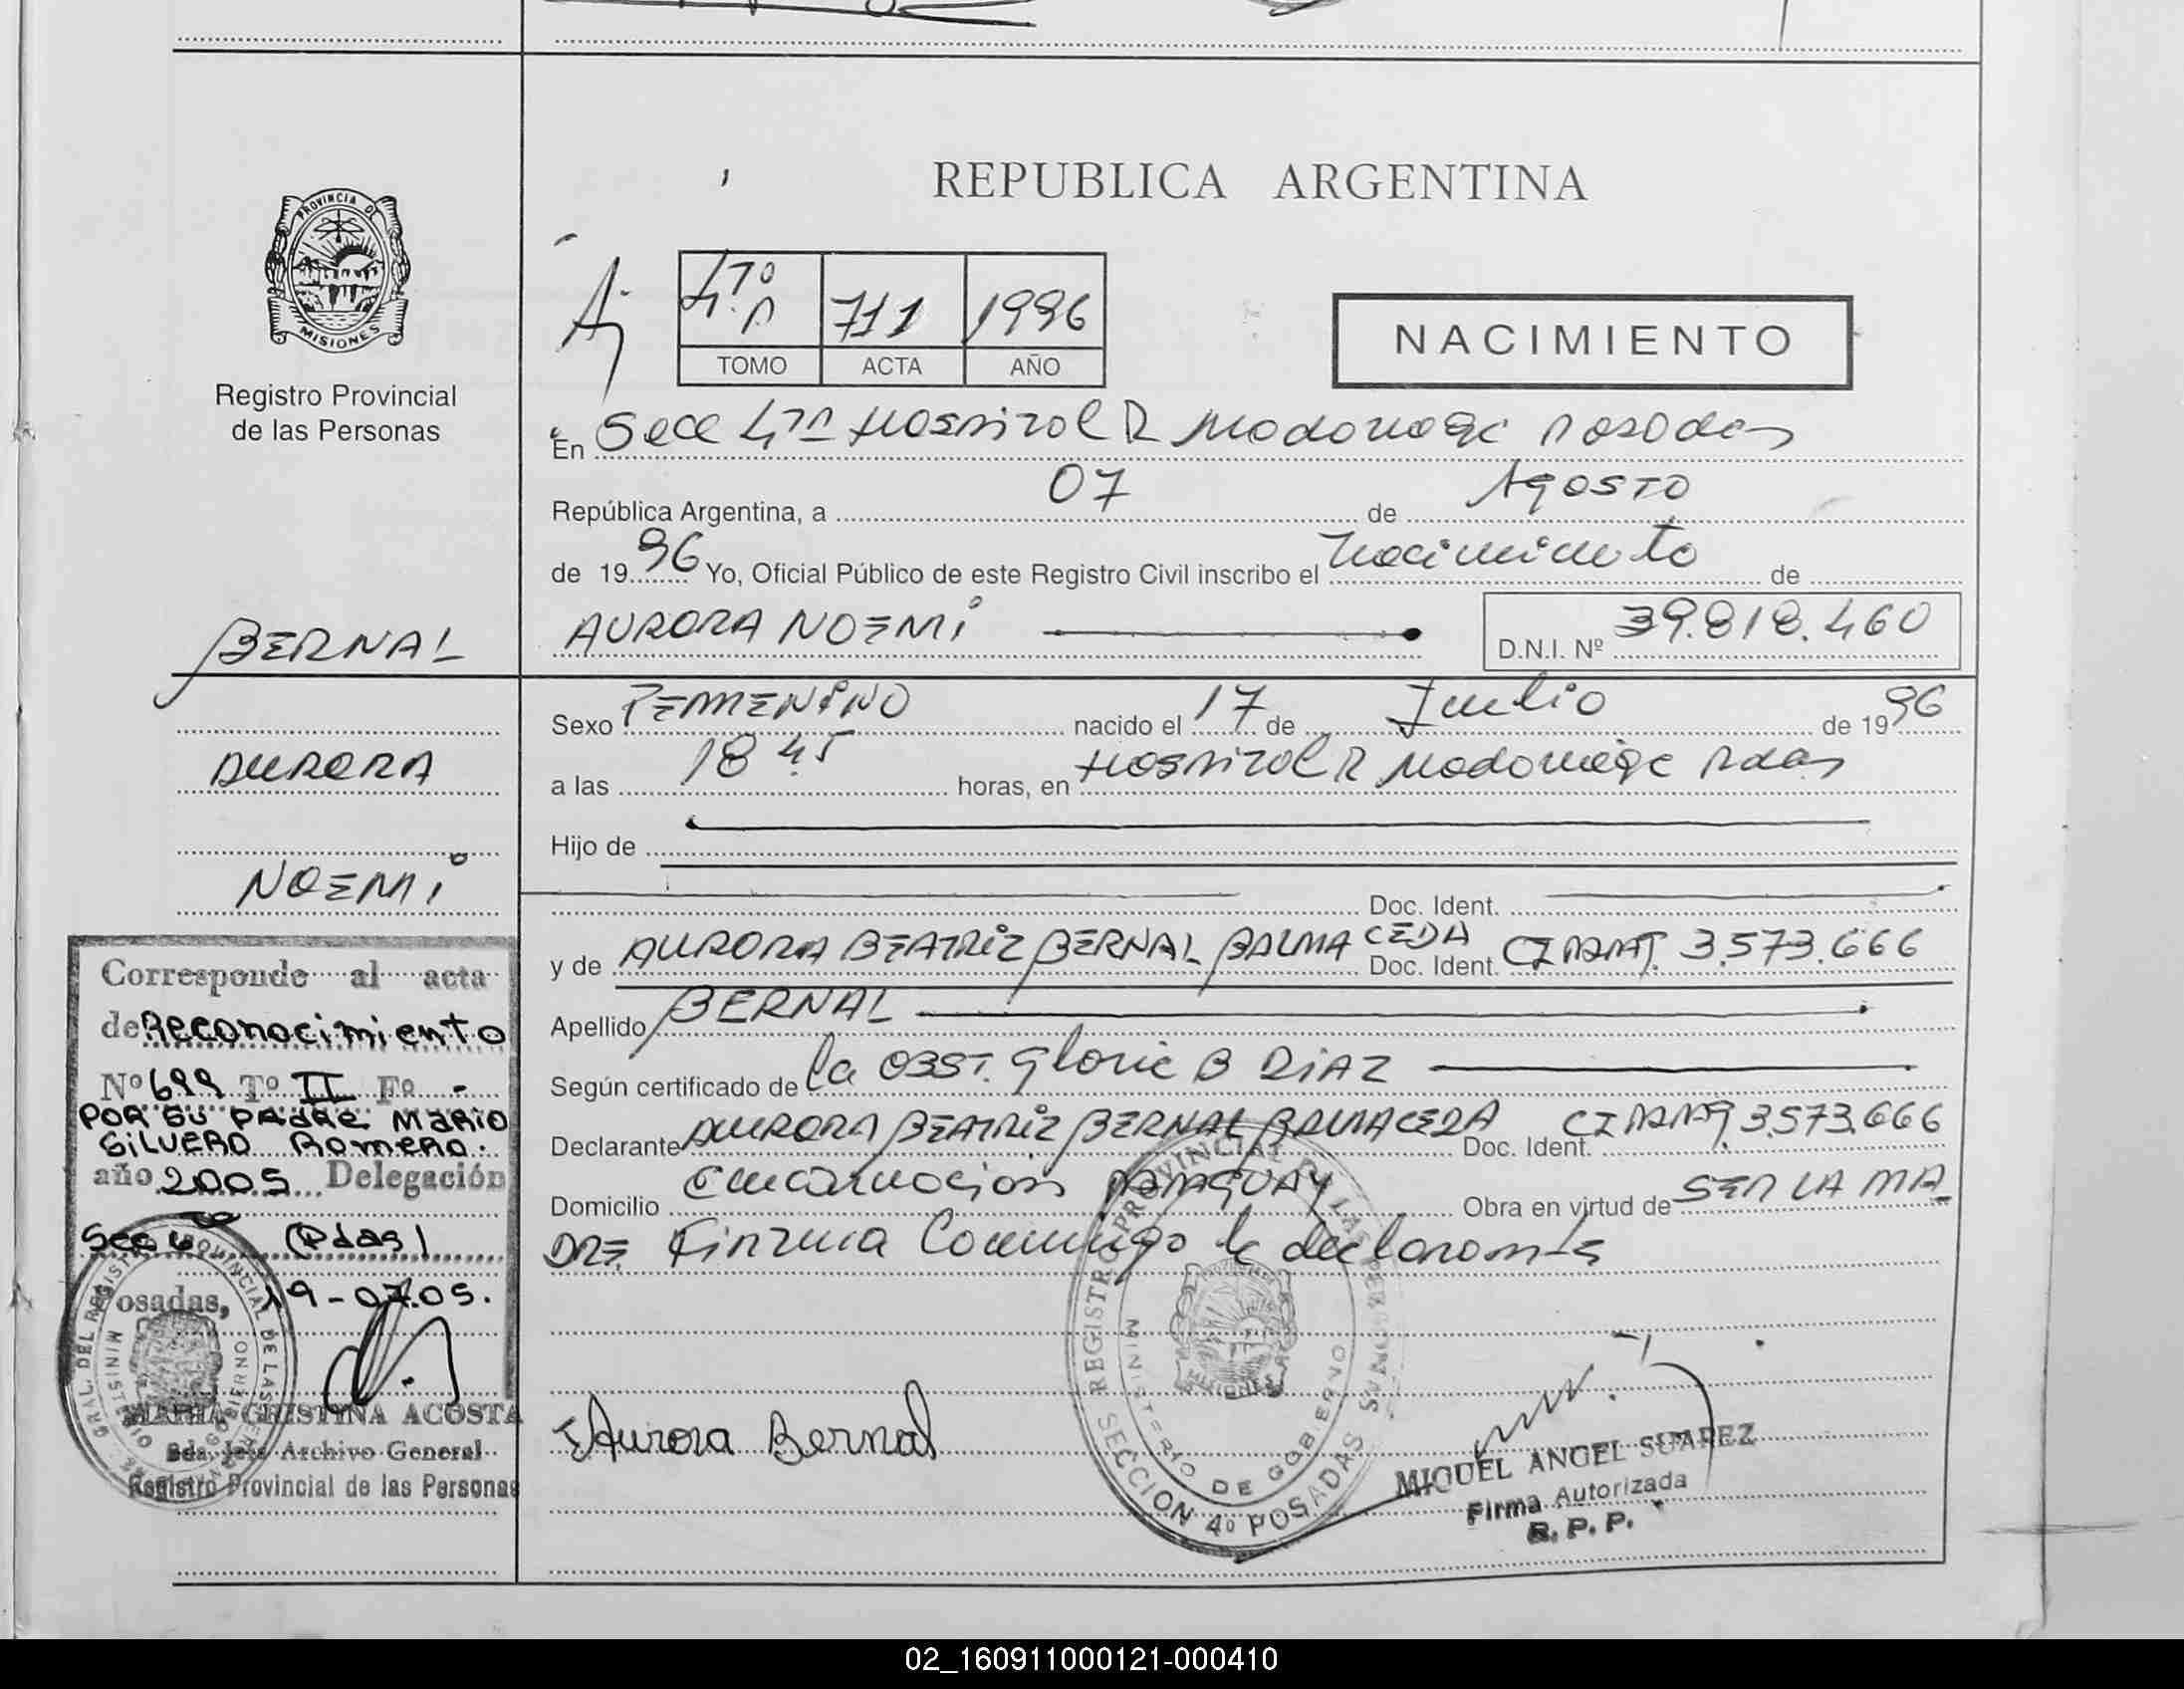 REPUBLICA ARGENTINA
PROVINCIA DE
MISIONES
Registro Provincial
de las Personas
4º 711 1996
TOMO ACTA AÑO
NACIMIENTO
En Secc 4ta Hospital R Madariaga Posadas
República Argentina, a 07 de Agosto
de 1996 Yo, Oficial Público de este Registro Civil inscribo el Nacimiento de
AURORA NOEMI D.N.I. Nº 39.818.460
BERNAL
AURORA
NOEMI
Sexo FEMENINO nacido el 17 de Julio de 1996
a las 18 45 horas, en Hospital R Madariaga Pdas
Hijo de
Doc. Ident.
y de AURORA BEATRIZ BERNAL BALMACEDA Doc. Ident. 3.573.666
Apellido BERNAL
Según certificado de la OBST. Gloria B DIAZ
Declarante AURORA BEATRIZ BERNAL BALMACEDA Doc. Ident. 3.573.666
Domicilio Encarnacion PARAGUAY Obra en virtud de SER LA MA
DRE Firma Conmigo la declarante
Aurora Bernal
REGISTRO PROVINCIAL DE LAS PERSONAS
MINISTERIO DE GOBIERNO
MISIONES
SECCION 4º POSADAS
MIGUEL ANGEL SUAREZ
Firma Autorizada
R. P. P.
Corresponde al acta
de Reconocimiento
Nº 699 Tº II Fº -
POR SU PADRE MARIO
SILVERO ROMERO.
año 2005 Delegación
Secc 4 (Pdas)
Posadas, 19-07.05.
MARIA CRISTINA ACOSTA
Archivo General
Registro Provincial de las Personas
02_160911000121-000410